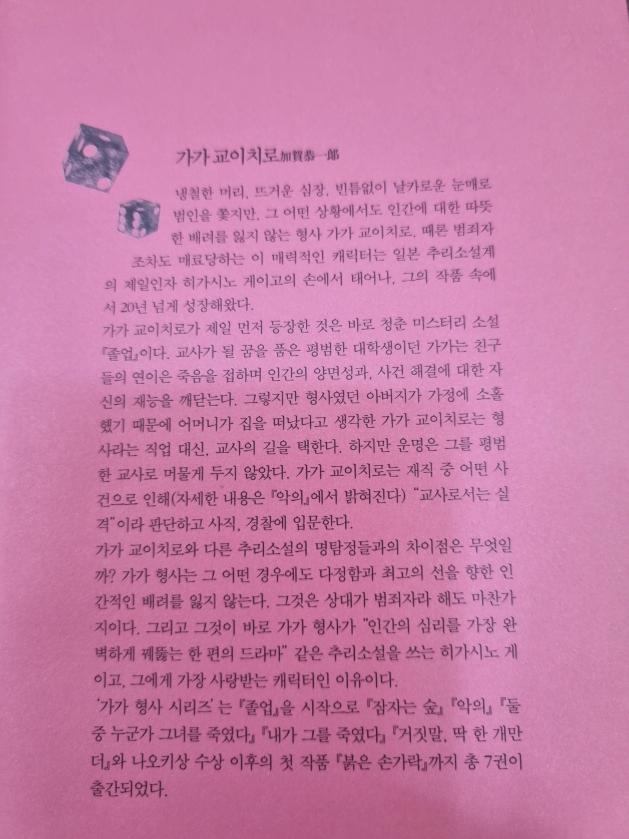 가가 교이치로加賀恭一郞
냉철한 머리, 뜨거운 심장, 빈틈없이 날카로운 눈매로
범인을 쫓지만, 그 어떤 상황에서도 인간에 대한 따뜻
한 배려를 잃지 않는 형사 가가 교이치로, 때론 범죄자
조차도 매료당하는 이 매력적인 캐릭터는 일본 추리소설계
의 제일인자 히가시노 게이고의 손에서 태어나, 그의 작품 속에
서 20년 넘게 성장해왔다.
가가 교이치로가 제일 먼저 등장한 것은 바로 청춘 미스터리 소설
『졸업』이다. 교사가 될 꿈을 품은 평범한 대학생이던 가가는 친구
들의 연이은 죽음을 접하며 인간의 양면성과, 사건 해결에 대한 자
신의 재능을 깨닫는다. 그렇지만 형사였던 아버지가 가정에 소홀
했기 때문에 어머니가 집을 떠났다고 생각한 가가 교이치로는 형
사라는 직업 대신, 교사의 길을 택한다. 하지만 운명은 그를 평범
한 교사로 머물게 두지 않았다. 가가 교이치로는 재직 중 어떤 사
건으로 인해(자세한 내용은 『악의』에서 밝혀진다) “교사로서는 실
격”이라 판단하고 사직, 경찰에 입문한다.
가가 교이치로와 다른 추리소설의 명탐정들과의 차이점은 무엇일
까? 가가 형사는 그 어떤 경우에도 다정함과 최고의 선을 향한 인
간적인 배려를 잃지 않는다. 그것은 상대가 범죄자라 해도 마찬가
지이다. 그리고 그것이 바로 가가 형사가 “인간의 심리를 가장 완
벽하게 꿰뚫는 한 편의 드라마” 같은 추리소설을 쓰는 히가시노 게
이고, 그에게 가장 사랑받는 캐릭터인 이유이다.
‘가가 형사 시리즈’는 『졸업』을 시작으로 『잠자는 숲』 『악의』 『둘
중 누군가 그녀를 죽였다』 『내가 그를 죽였다』 『거짓말, 딱 한 개만
더』와 나오키상 수상 이후의 첫 작품 『붉은 손가락』까지 총 7권이
출간되었다.